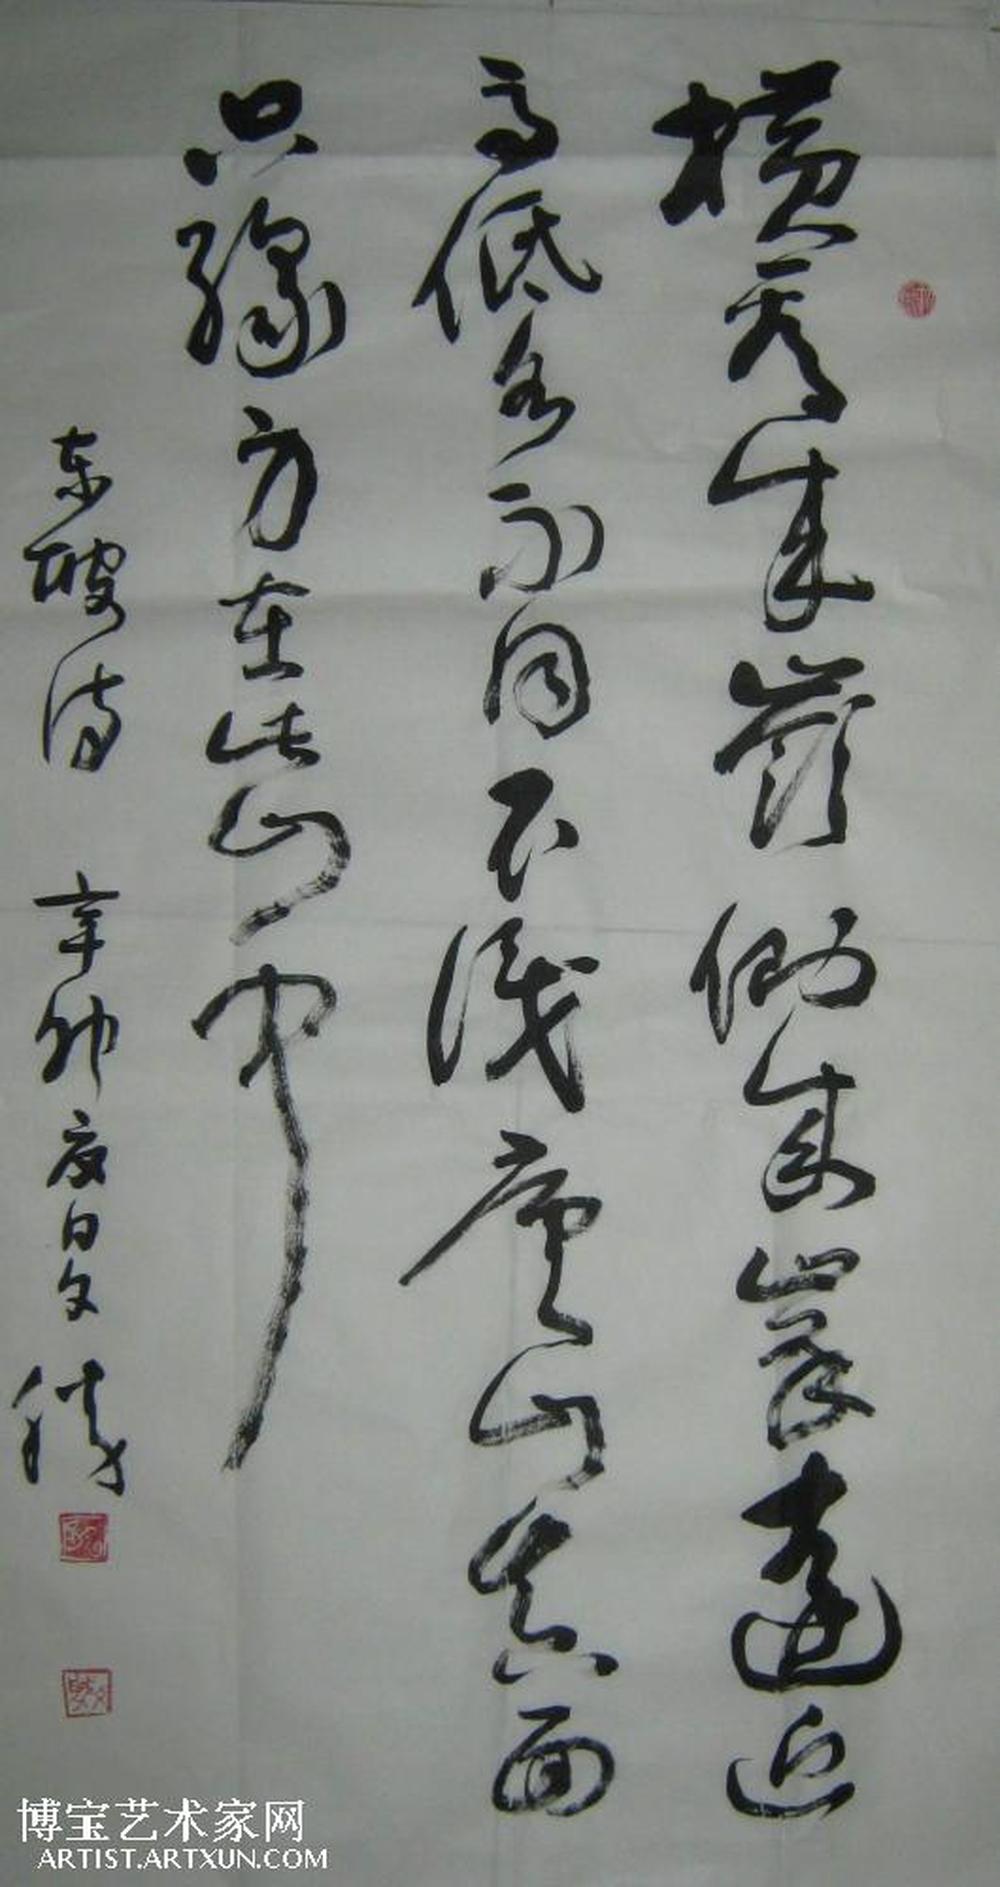 横看成嶺侧成峯遠近
高低各不同不識庐山真面
只緣方在此山中
东坡诗 辛卯夏日文
博宝艺术家网
ARTIST.ARTXUN.COM